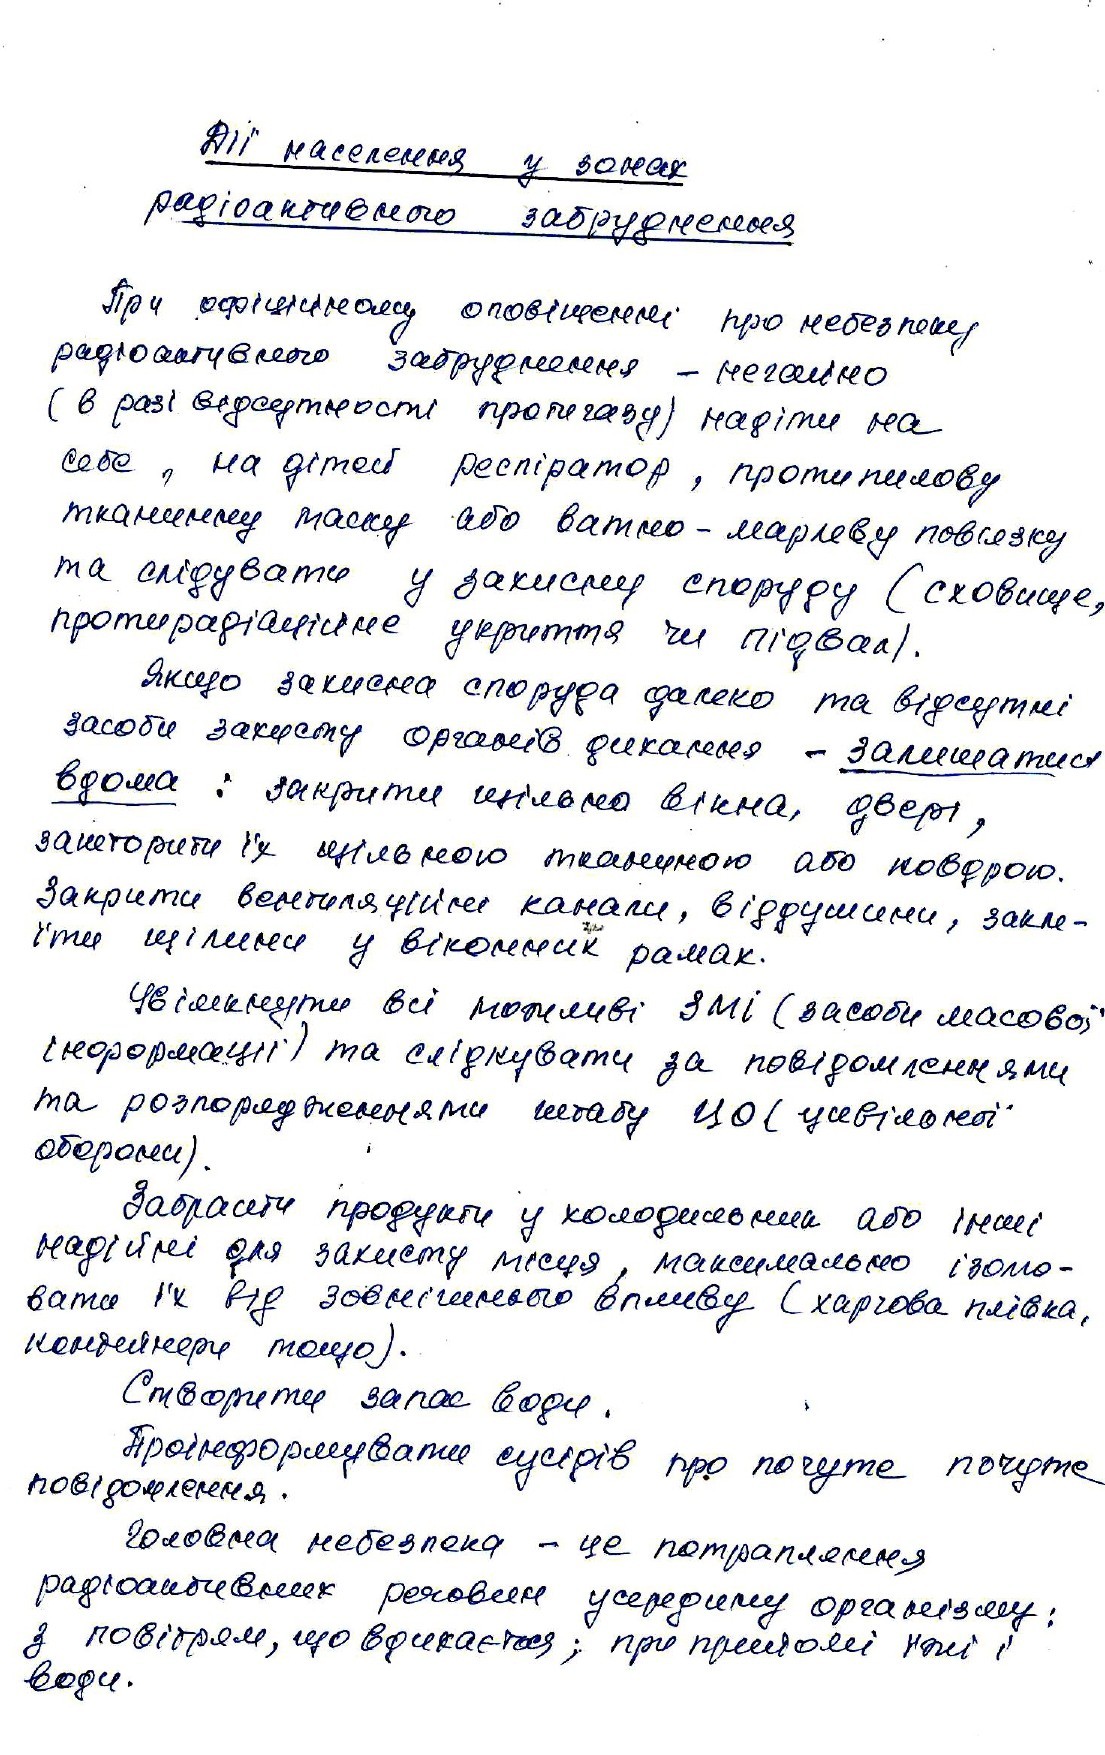 Дії населення у зонах
радіоактивного забруднення
При офіційному оповіщенні про небезпеку
радіоактивного забруднення – негайно
(в разі відсутності протигазу) надіти на
себе, на дітей респіратор, протипилову
тканинну маску або ватно-марлеву повязку
та слідувати у захисну споруду (сховище,
протирадіаційне укриття чи підвал).
Якщо захисна споруда далеко та відсутні
засоби захисту органів дихання – залишатися
вдома : закрити щільно вікна, двері,
зашторити їх щільною тканиною або ковдрою.
Закрити вентиляційні канали, віддушини, закле-
їти щілини у віконних рамах.
Увімкнути всі можливі ЗМІ (засоби масової
інформації) та слідкувати за повідомленнями
та розпорядженнями штабу ЦО (цивільної
оборони).
Забрати продукти у холодильник або інші
надійні для захисту місця, максимально ізолю-
вати їх від зовнішнього впливу (харчова плівка,
контейнери тощо).
Створити запас води.
Проінформувати сусідів про почуте почуте
повідомлення.
Головна небезпека – це потрапляння
радіоактивних речовин усередину організму:
з повітрям, що вдихається; при прийомі їжі і
води.